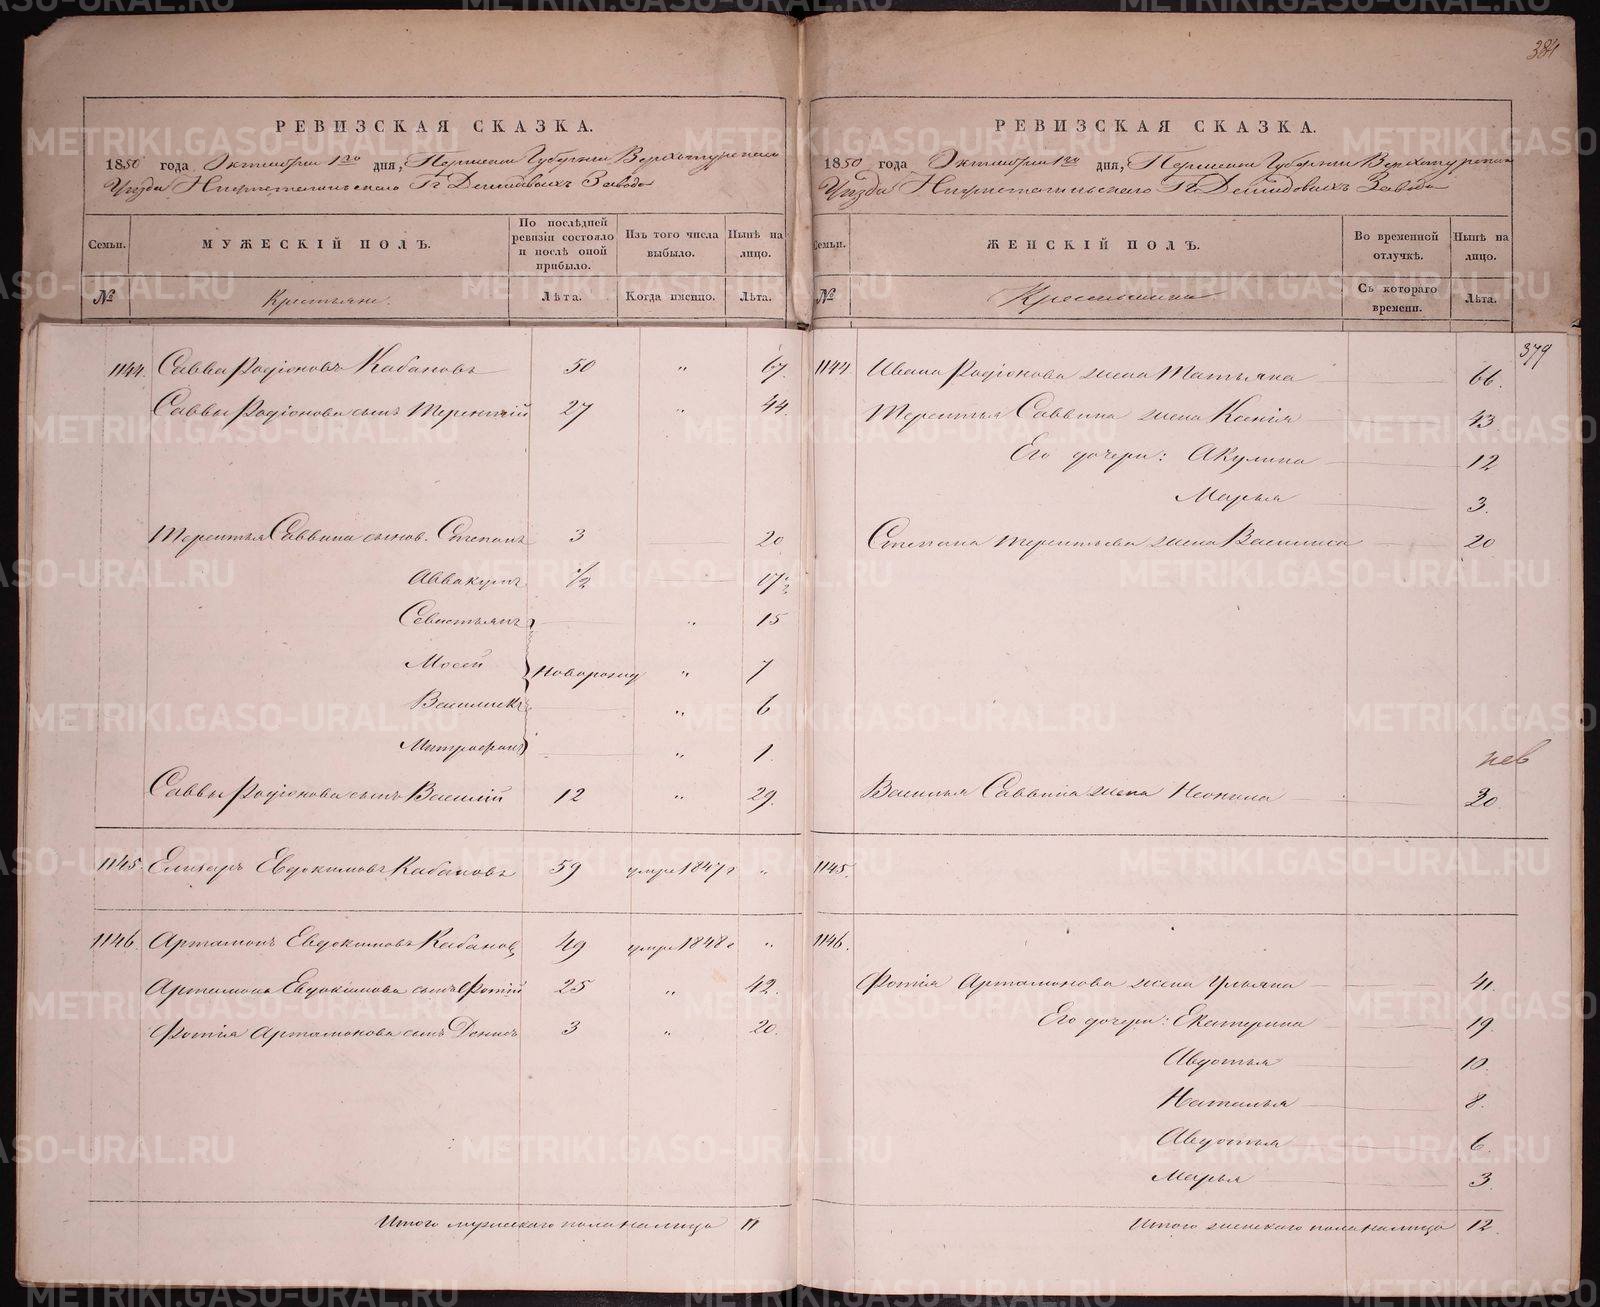 384
РЕВИЗСКАЯ СКАЗКА.
1850 года Октября 1го дня, Пермской Губернии Верхотурскаго
Уѣзда Нижнетагильскаго Гг. Демидовыхъ Завода
Семьи.
МУЖЕСКІЙ ПОЛЪ.
По послѣдней ревизіи состояло и послѣ оной прибыло.
Изъ того числа выбыло.
Нынѣ на лицо.
№
Крестьяне.
Лѣта.
Когда именно.
Лѣта.
1144. Савва Родіоновъ Кабановъ 50 " 67.
Саввы Родіонова сынъ Терентій 27 " 44.
Терентья Саввина сынов. Степанъ 3 20
Аввакумъ 1/2 17 1/2
Севастьянъ " 15
Мосей Новорожд " 7
Василискъ " 6
Митрофанъ " 1.
Саввы Родіонова сынъ Василій 12 " 29.
1145. Елизаръ Евдокимовъ Кабановъ 59 умре 1847 г "
1146. Артамонъ Евдокимовъ Кабановъ 49 умре 1848 г "
Артамона Евдокимова сынъ Фотій 25 " 42.
Фотія Артамонова сынъ Денисъ 3 " 20.
Итого мужескаго пола на лицо 11
РЕВИЗСКАЯ СКАЗКА.
1850 года Октября 1го дня, Пермской Губерніи Верхотурскаго
Уѣзда Нижнетагильскаго Гг. Демидовыхъ Завода
Семьи.
ЖЕНСКІЙ ПОЛЪ.
Во временной отлучкѣ.
Нынѣ на лицо.
№
Крестьянки
Съ котораго времени.
Лѣта.
379
1144 Ивана Родіонова жена Татьяна 66.
Терентья Саввина жена Ксенія 43.
Его дочери: Акулина 12
Марья 3.
Степана Терентьева жена Василиса 20
Василья Саввина жена Неонила 20.
1145.
1146.
Фотія Артамонова жена Ульяна 41.
Его дочери: Екатерина 19.
Авдотья 10.
Наталья 8.
Авдотья 6.
Марья 3.
Итого женскаго пола на лицо 12.
METRIKI.GASO-URAL.RU